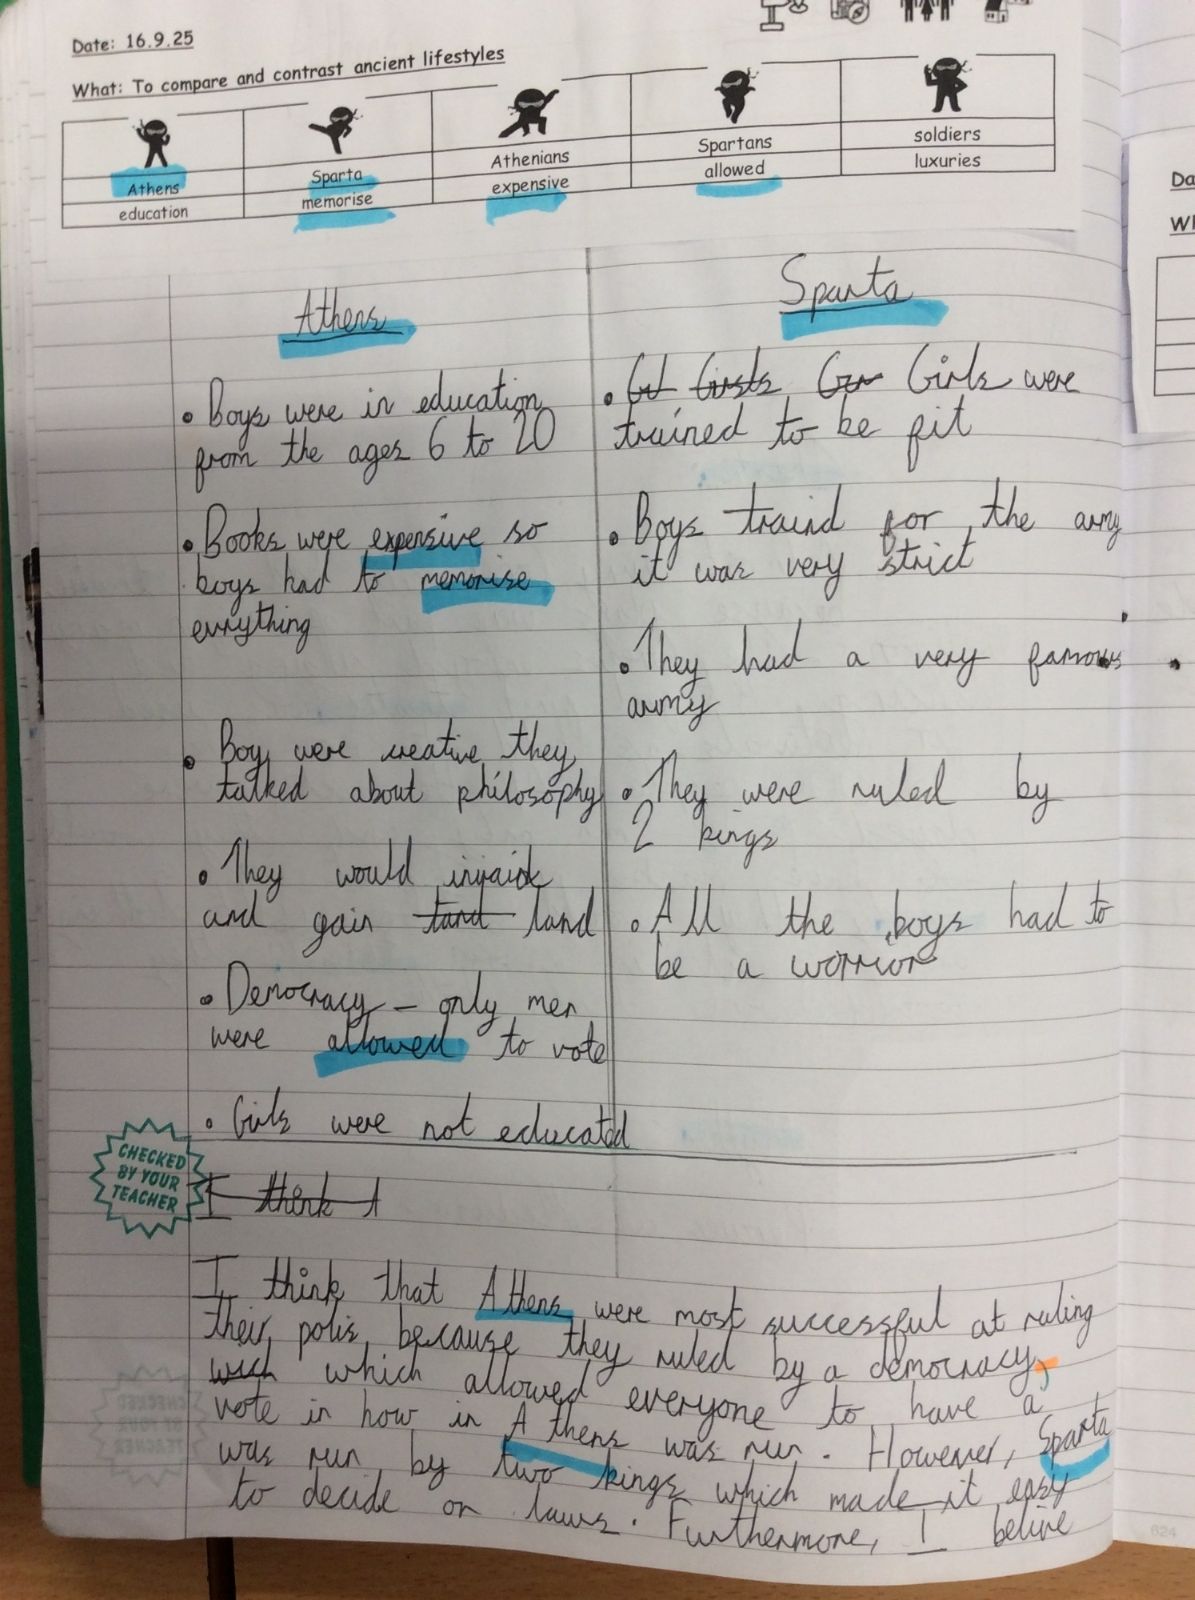 Date: 16.9.25
What: To compare and contrast ancient lifestyles
Athens Sparta Athenians Spartans soldiers
education memorise expensive allowed luxuries
Athens
• Boys were in education
from the ages 6 to 20
• Books were expensive so
boys had to memorise
evrything
• Boy were creative they
talked about philosophy
• They would
and gain land land
• Democracy – only men
were allowed to vote
• Girls were not educated
Sparta
• Girls were
trained to be fit
• Boys traind for the army
it was very strict
• They had a very famous
army
• They were ruled by
2 kings
• All the boys had to
be a worrior
CHECKED
BY YOUR
TEACHER
I think A
I think that Athens were most successful at ruling
their polis because they ruled by a democracy,
which allowed everyone to have a
vote in how in Athens was run. However, Sparta
was run by two kings which made it easy
to decide on laws. Furthermore, I belive
Da
Wh
624